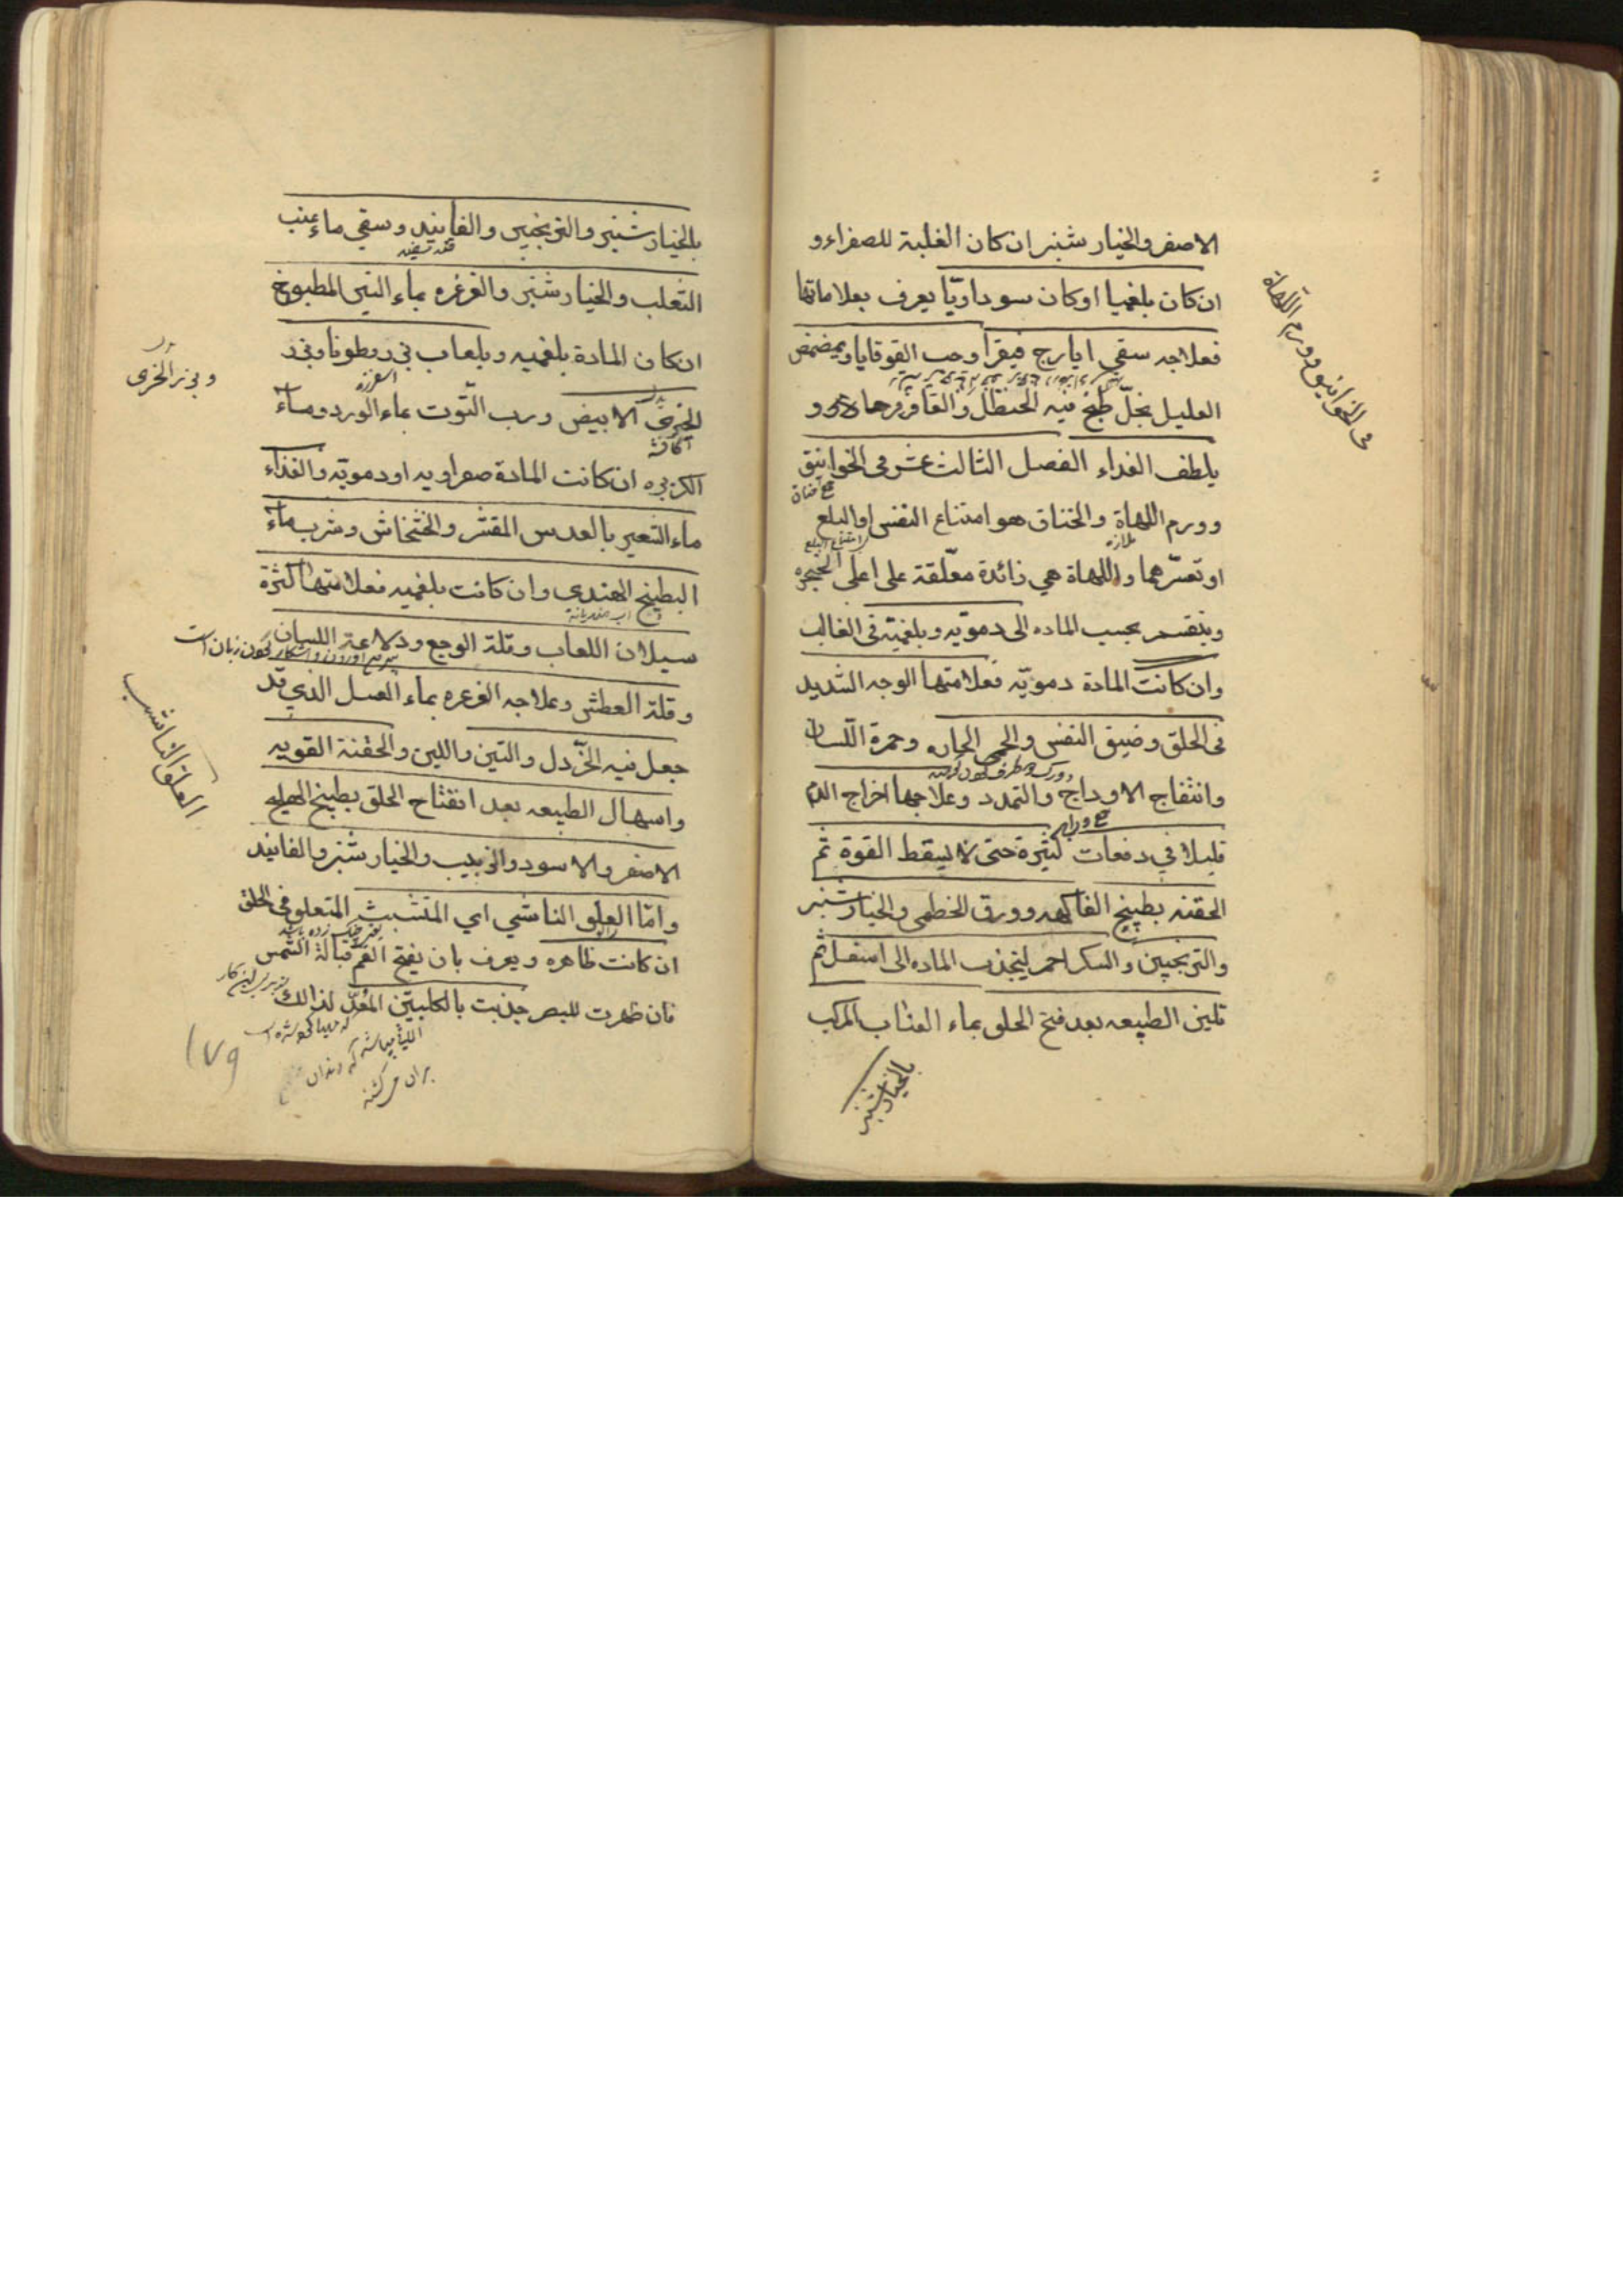 الاصفر والخيار شنبر ان كان الغلبة للصفراء و
ان كان بلغميا او كان سوداويّا يعرف بعلاماتها
فعلاجه سقي ايارج فيقرا وحب القوقايا ويمضمض
العليل بخلّ طبخ فيه الحنظل والعاقرقرحا و
يلطف الغداء الفصل الثالث عشر فى الخوانيق
جمع خناق
وورم اللهاة والخناق هو امتناع النفس او البلع
ملازه
امتناع البلع
او تعسّرهما واللهاة هي زائدة معلّقة على اعلى الحنجره
وينقسم بحسب الماده الى دمويّه وبلغميّة فى الغالب
وان كانت المادة دمويّه فعلامتها الوجه الشديد
فى الحلق وضيق النفس والحمى الحاره وحمرة اللّسان
وانتفاج الاوداج والتمدد وعلاجها اخراج الدم
قليلا في دفعات كثيرة حتى لا يسقط القوة ثم
الحقنه بطبيخ الفاكهه وورق الخطمى والخيار شنبر
والترنجبين والسكر احمر لينجذب الماده الى اسفل ثم
تلين الطبيعه بعد فتح الحلق بماء العناب المركب
بالخيار شنبر
فى الخوانيق وورم اللهاة
بالخيار شنبر والترنجبين والفانيد وسقي ماء عنب
الثعلب والخيار شنبر والغرغره بماء التين المطبوخ
ان كان المادة بلغميه وبلعاب بزر قطونا وبزر
اسفرزه
وبزر الخرى
الابيض ورب التّوت بماء الورد وماء
الكزبره ان كانت المادة صفراويه او دمويّه والغذاء
ماء الشعير بالعدس المقشر والخشخاش وشرب ماء
البطيخ الهندى وان كانت بلغميه فعلامتها كثرة
سيلان اللعاب وقلة الوجع ودلاعة اللسان
وقلة العطش وعلاجه الغرغره بماء العسل الذي قد
جعل فيه الخّردل والتين واللبن والحقنة القويه
واسهال الطبيعه بعد انفتاح الحلق بطبيخ الهليله
الاصفر والاسود والزبيب والخيار شنبر والفانيد
وامّا العلق الناشي اي المتشبث المتعلق فى الحلق
ان كانت ظاهره ويعرف بان يفتح الفم قبالة الشمس
فان ظهرت للبصر جذبت بالكلبتين المعدّ لذالك
العلق الناشب
۱۷۹